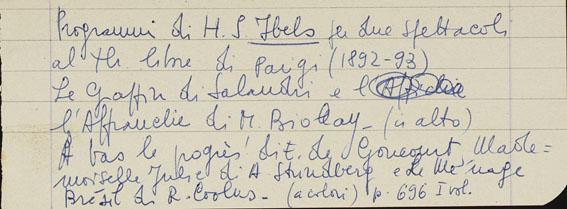 Programmi di H. S. Ibels per due spettacoli
al Th. libre di Parigi (1892-93)
Le Graffin di Salandri e l'
l'Affranchie di M. Biollay - (in alto)
A bas le progrès' di E. de Goncourt Made=
moiselle Julie di A. Strindberg e Le Ménage
Brésil di R. Coolus - (a colori) p. 696 I vol.